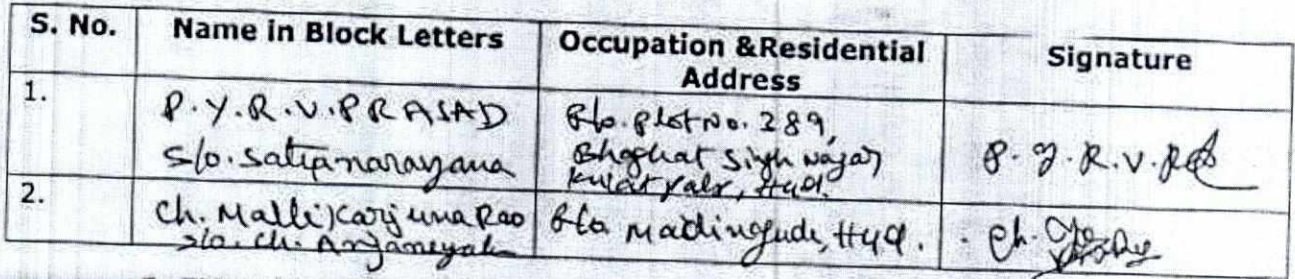 S. No.
Name in Block Letters
Occupation &Residential Address
Signature
1.
P.Y.R.V.PRASAD
S/o. Satyanarayana
R/o. Plot No. 289,
Bhaghat Singh Nagar
Hyd.
P.Y.R.V.
2.
Ch. Mallikarjuna Rao
S/o. Ch. Anjaneyalu
R/o Madinaguda, Hyd.
Ch.